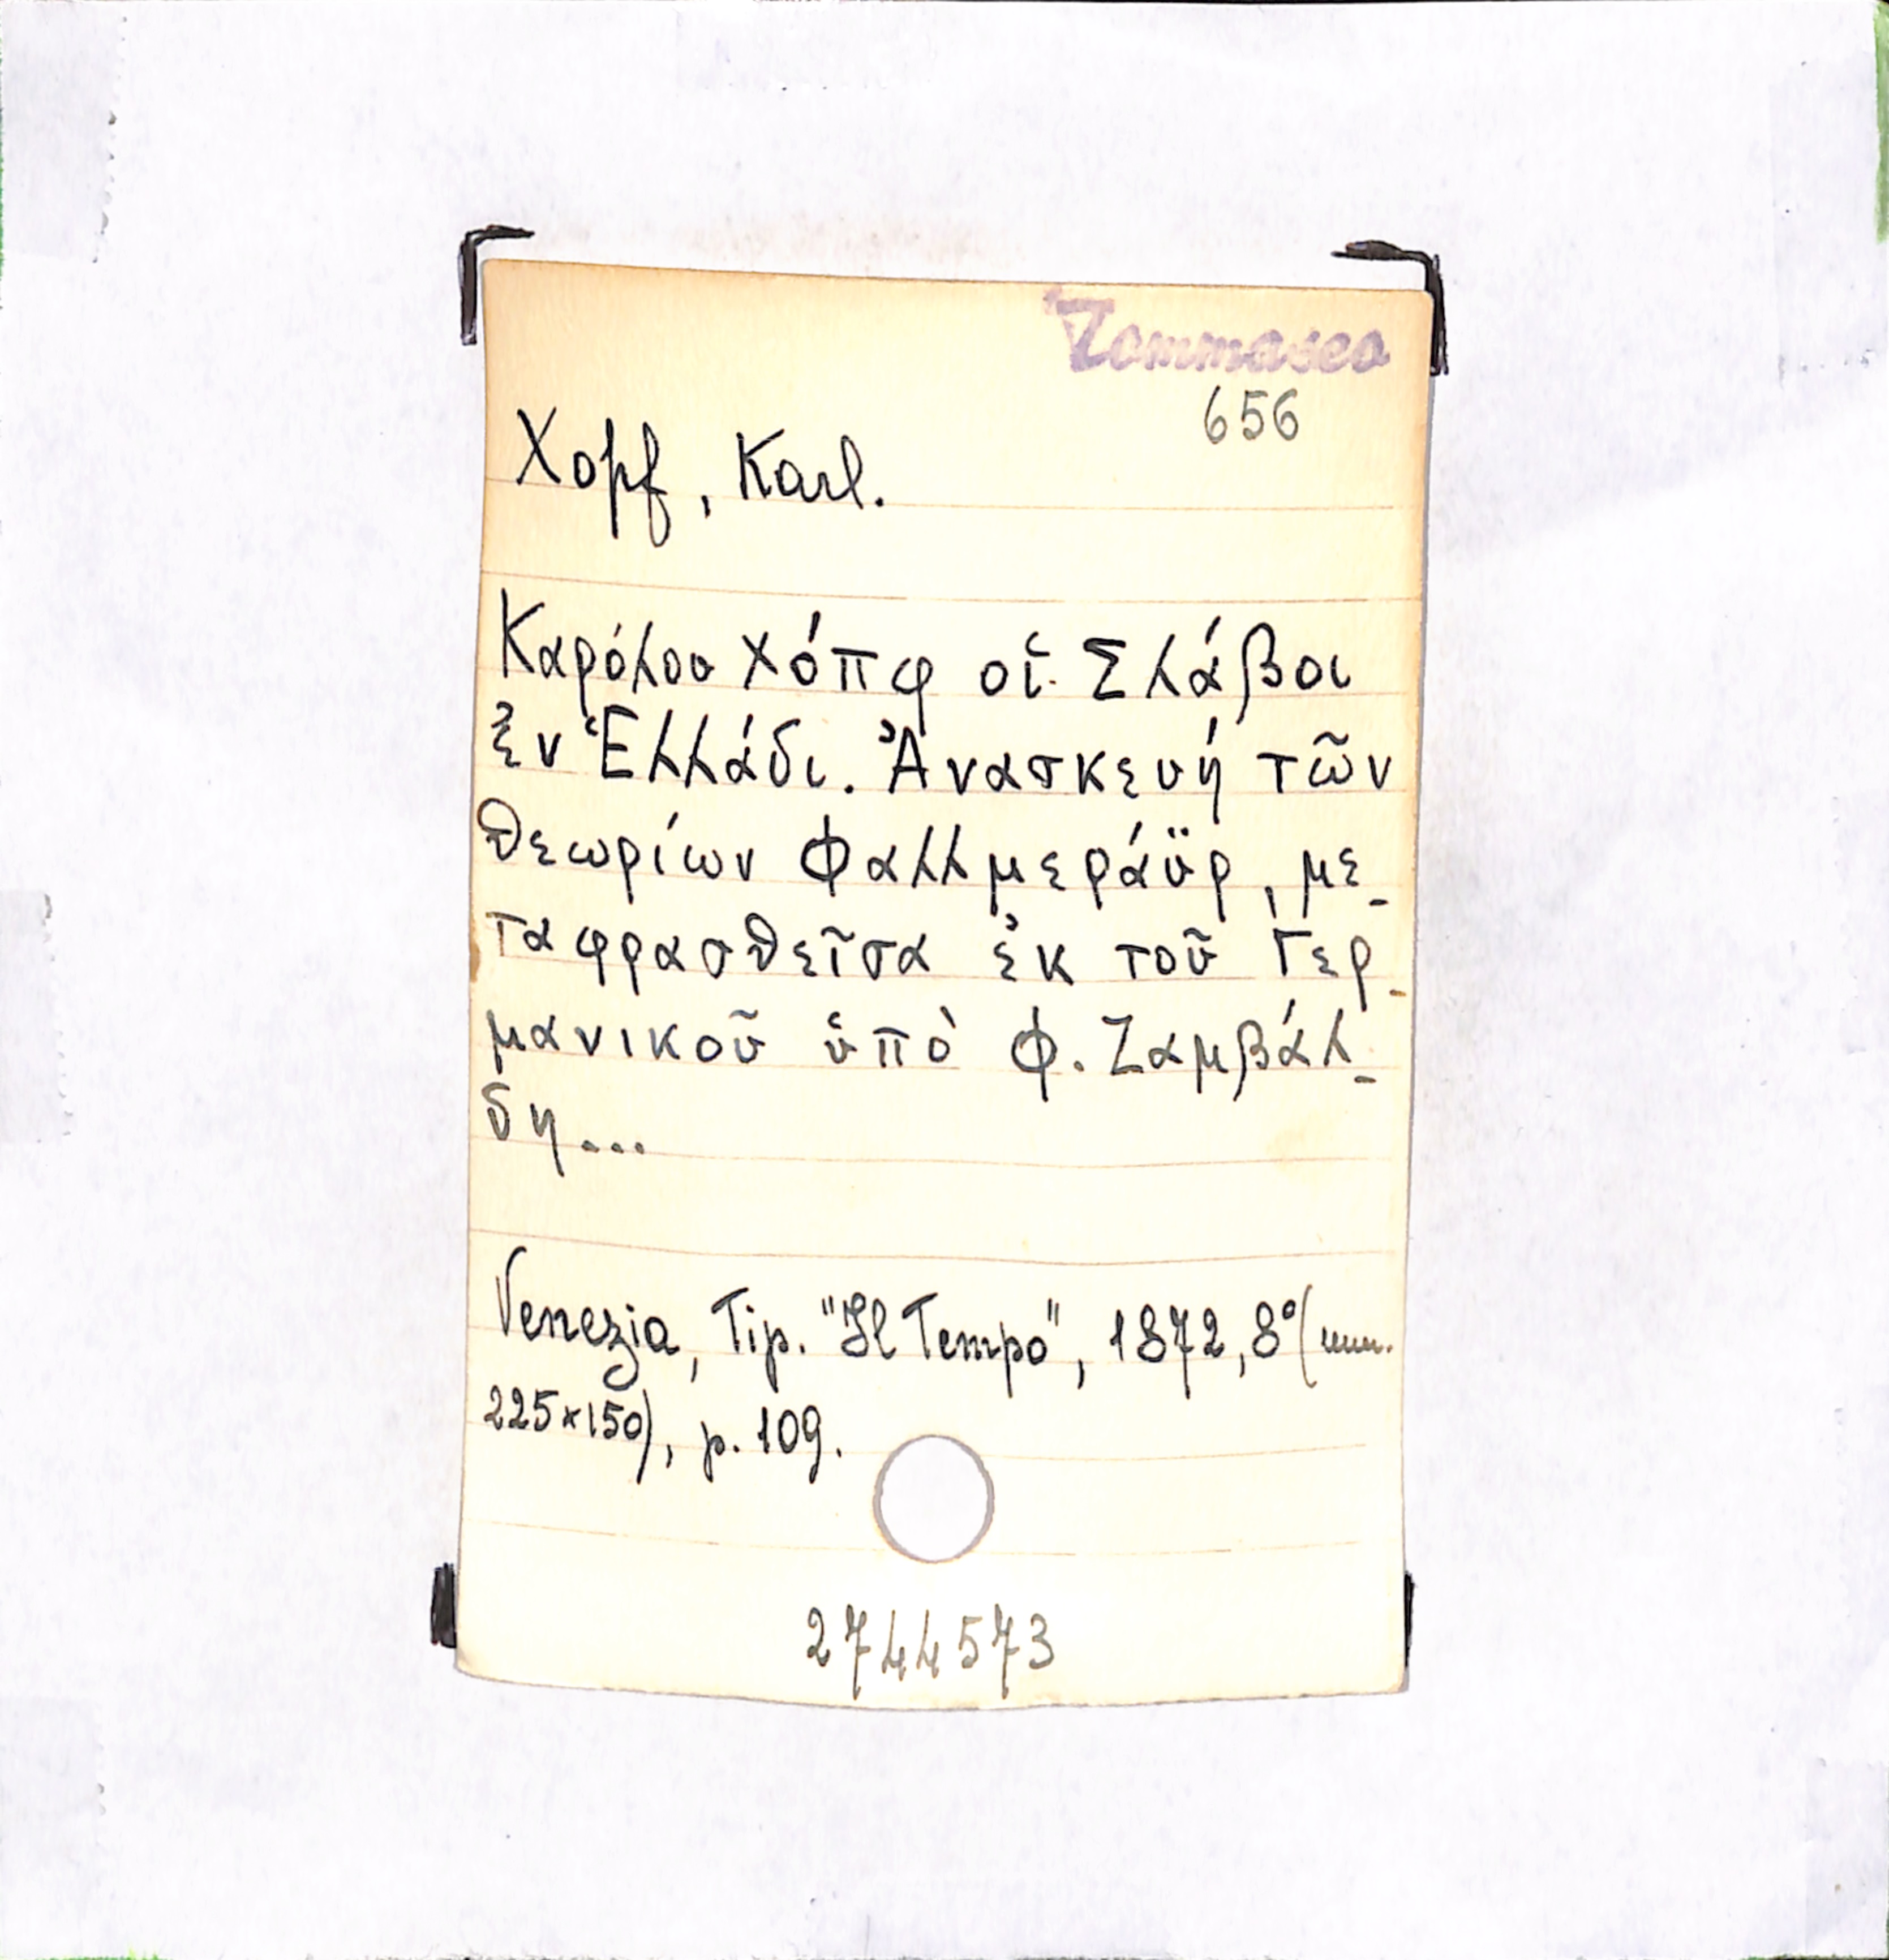 Tommaseo
656
Xopf, Karl.
Καρόλου Χόπφ οἱ Σλάβοι
ἐν Ἑλλάδι. Ἀνασκευή τῶν
θεωρίων Φαλλμεράϋρ, με-
ταφρασθεῖσα ἐκ τοῦ Γερ-
μανικοῦ ὑπὸ Φ. Ζαμβάλ-
δη...
Venezia, Tip. "Il Tempo", 1872, 8° (mm.
225×150), p. 109.
2744573